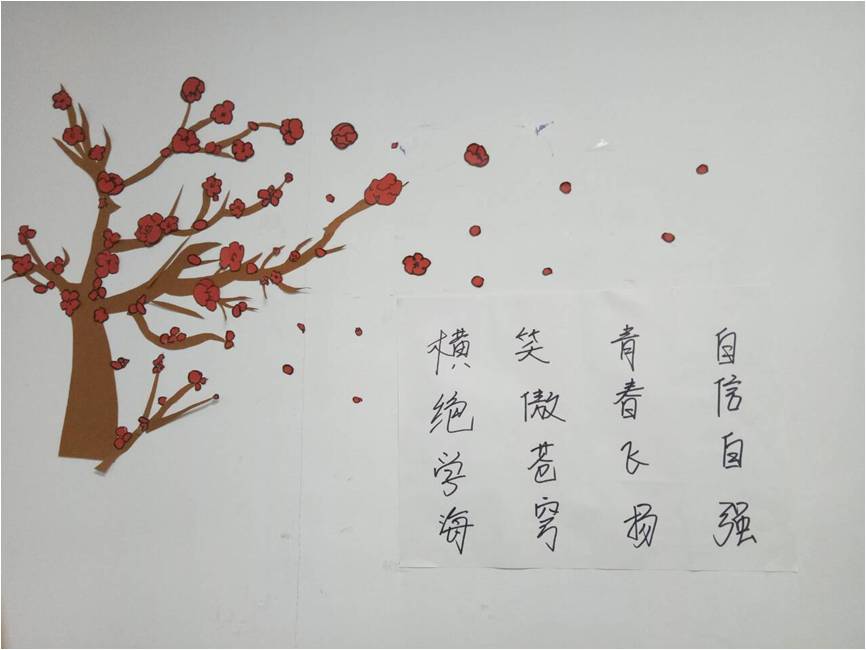 自信自强
青春飞扬
笑傲苍穹
横绝学海